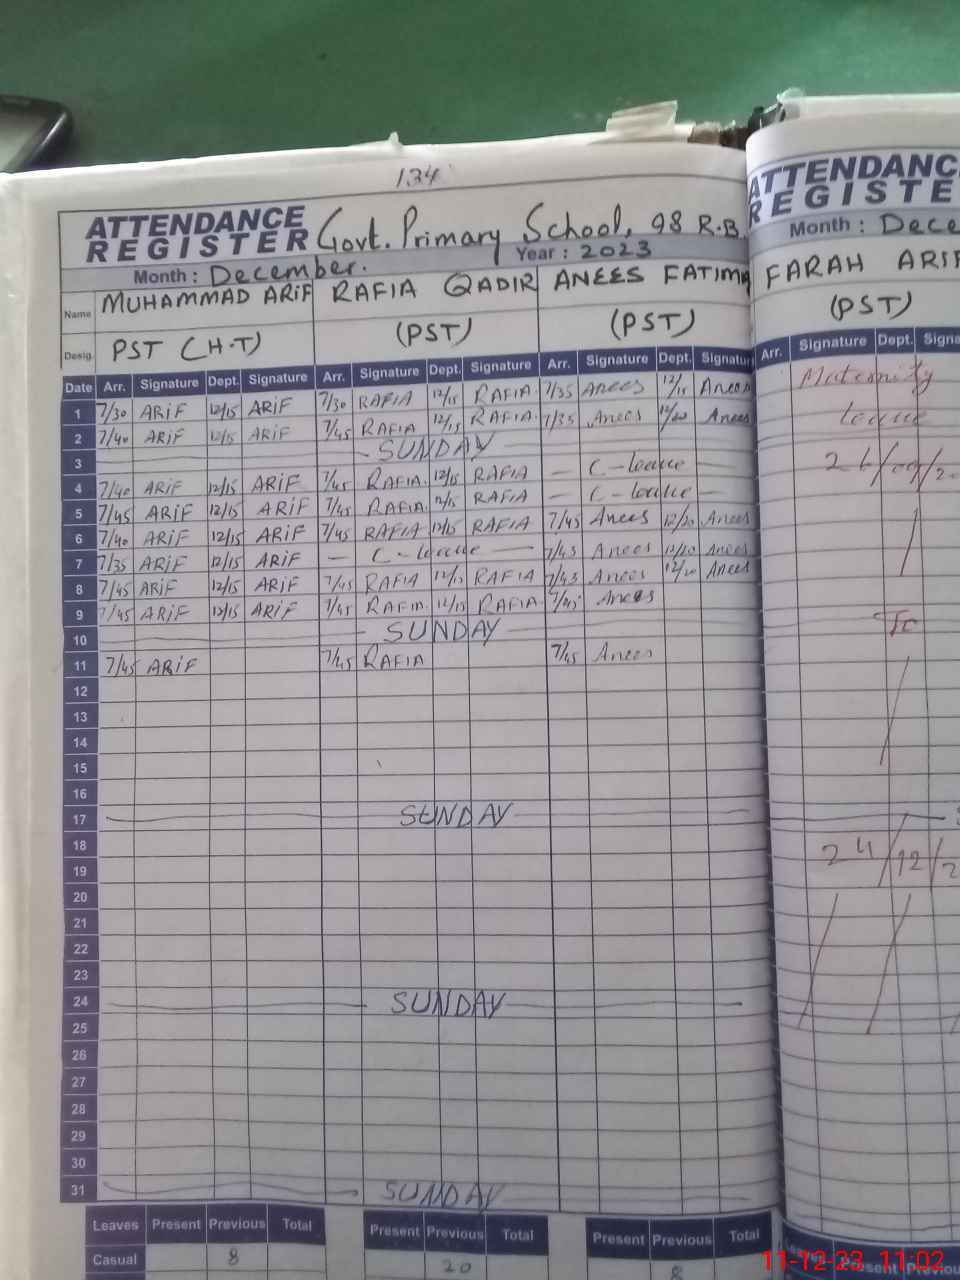 134
ATTENDANCE REGISTER Govt. Primary School, 98 R.B.
Month : December. Year : 2023
Name MUHAMMAD ARiF RAFIA QADIR ANEES FATIMA
Desig. PST (H.T) (PST) (PST)
Date Arr. Signature Dept. Signature Arr. Signature Dept. Signature Arr. Signature Dept. Signature
1 7/30 ARiF 12/15 ARiF 7/30 RAFIA 12/15 RAFIA 7/35 Anees 12/15 Anees
2 7/40 ARiF 12/15 ARiF 7/45 RAFIA 12/15 RAFIA 7/35 Anees 12/20 Anees
3 SUNDAY
4 7/40 ARiF 12/15 ARiF 7/45 RAFIA 12/15 RAFIA — C-leave —
5 7/45 ARiF 12/15 ARiF 7/45 RAFIA 12/15 RAFIA — C-leave —
6 7/40 ARiF 12/15 ARiF 7/45 RAFIA 12/15 RAFIA 7/45 Anees 12/20 Anees
7 7/35 ARiF 12/15 ARiF — C-leave — 7/43 Anees 12/20 Anees
8 7/45 ARiF 12/15 ARiF 7/45 RAFIA 12/15 RAFIA 7/43 Anees 12/20 Anees
9 7/45 ARiF 12/15 ARiF 7/45 RAFIA 12/15 RAFIA 7/45 Anees
10 SUNDAY
11 7/45 ARiF 7/45 RAFIA 7/45 Anees
12
13
14
15
16
17 SUNDAY
18
19
20
21
22
23
24 SUNDAY
25
26
27
28
29
30
31 SUNDAY
Leaves Present Previous Total Present Previous Total Present Previous Total
Casual 8 20 8
ATTENDANC
REGISTE
Month : Dece
FARAH ARIF
(PST)
Arr. Signature Dept. Signa
Maternity
leave
26/09/2
To
24/12/2
Leaves Present Previou
11-12-23 11:02